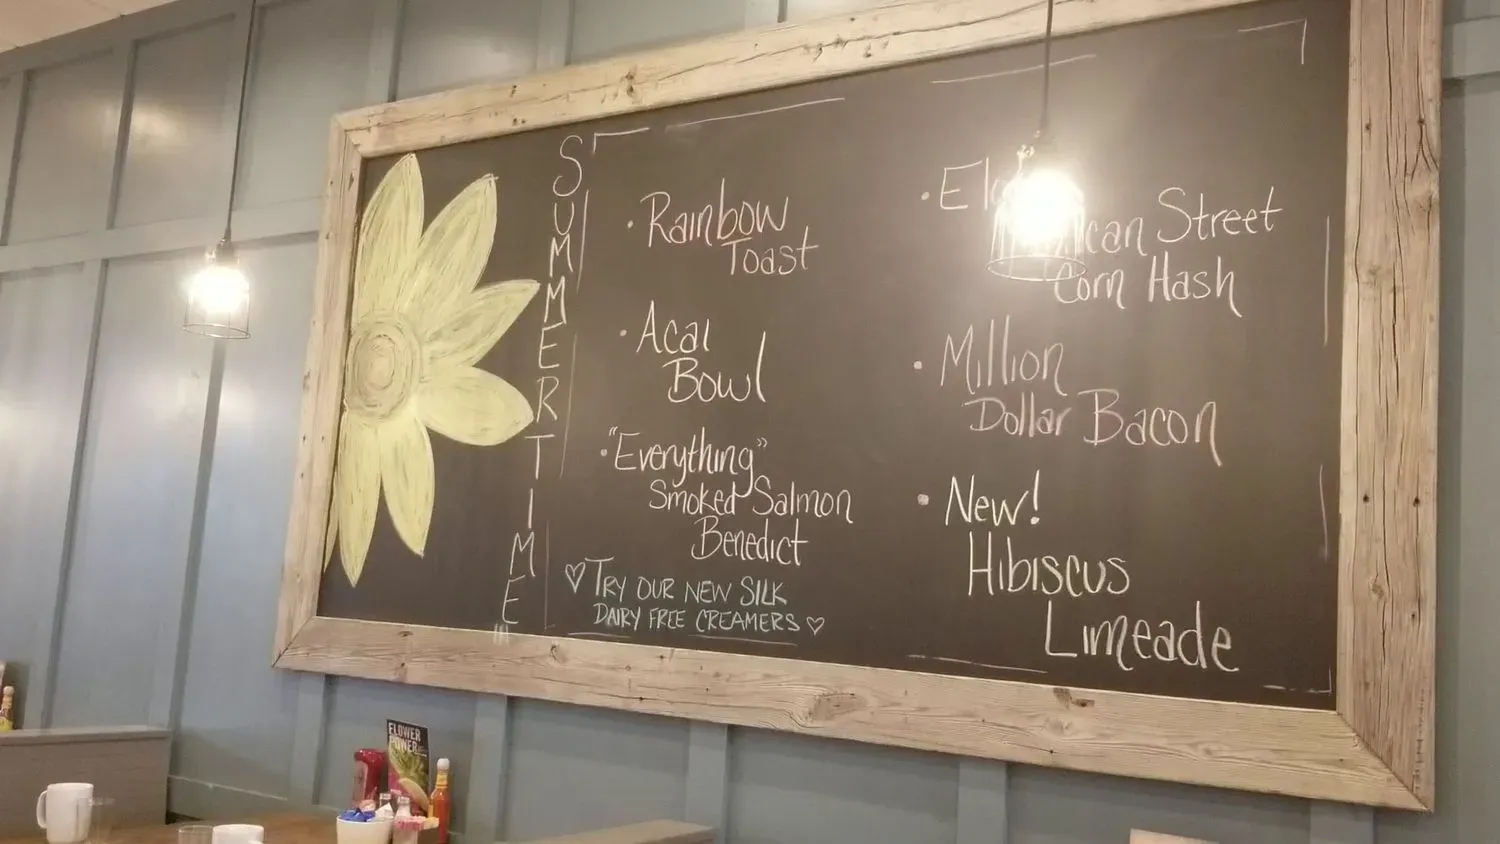 SUMMERTIME
• Rainbow
Toast
• Acai
Bowl
• "Everything"
Smoked Salmon
Benedict
♡ TRY OUR NEW SILK
DAIRY FREE CREAMERS ♡
•
Street
Corn Hash
• Million
Dollar Bacon
• New!
Hibiscus
Limeade
FLOWER
POWER